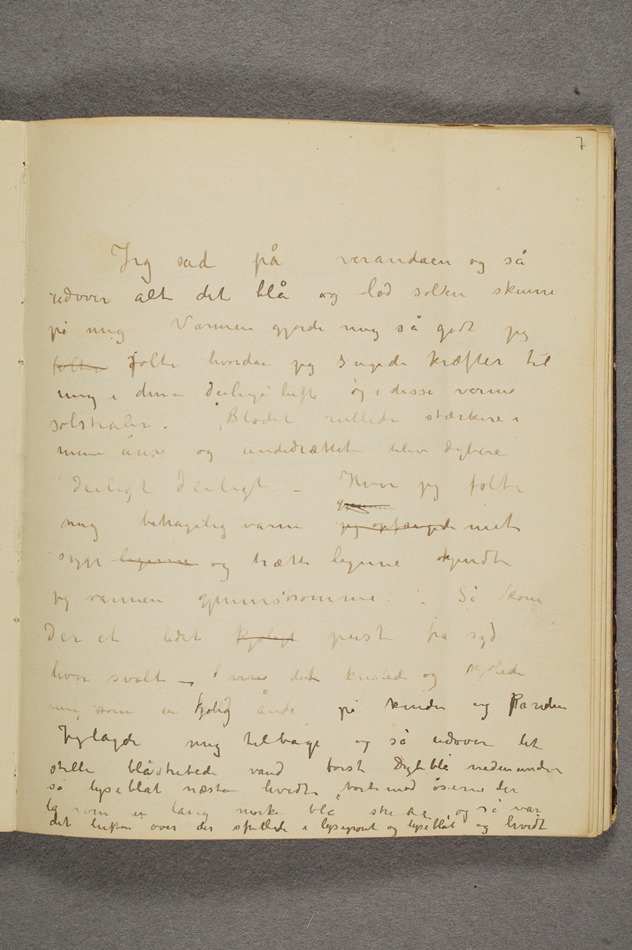 7
Jeg sad på verandaen og så
udover alt det blå og lod solen skinne
på mig Varmen gjorde mig så godt jeg
følte følte hvordan jeg sugede kræfter til
mig i denne deilige luft og i disse varme
solstraler. Blodet rullede stærkere i
mine årer og åndedrættet blev dybere
deiligt deiligt – Hvor jeg følte
mig behagelig varm jeg opfangede mit
syge legeme og trætte legeme kjendte
jeg varmen gjennemstrømme. Så kom
der et lidet kjøligt pust fra syd
hvor svalt – det krusede og
mig som en kjølig ånde på kinden og Panden
Jeg lagde mig tilbage og så udover det
stille blåstribede vand først dybblå nedenunder
så lyseblåt næsten hvidt bortimod åserne der
lå som en lang mørk blå stribe og så var
det luften over der spillede i lyserødt og lyseblåt og hvidt